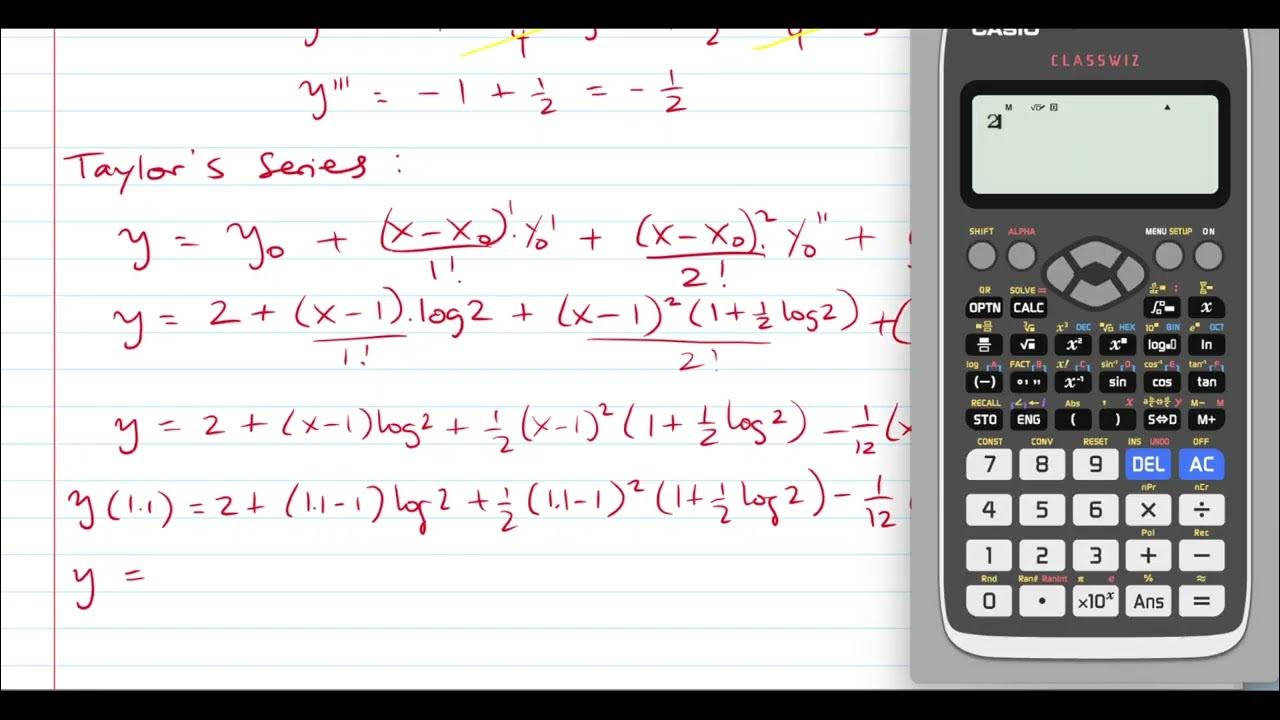 y''' = - 1 + 1/2 = - 1/2
Taylor's Series :
y = y₀ + (x-x₀)¹.y₀'/1! + (x-x₀)².y₀''/2! +
y = 2 + (x-1).log2/1! + (x-1)²(1+½log2)/2! + (
y = 2 + (x-1)log2 + ½(x-1)²(1+½log2) - 1/12(x
y(1.1) = 2+ (1.1-1)log2 + ½(1.1-1)²(1+½log2) - 1/12
y =
CASIO
CLASSWIZ
M √▱ D ▲
2
SHIFT ALPHA MENU SETUP ON
QR SOLVE = :
OPTN CALC x
x³ DEC HEX 10■ BIN e■ OCT
√■ x² x■ log■□ ln
log A FACT B x! C sin⁻¹ D cos⁻¹ E tan⁻¹ F
(−) °'" x⁻¹ sin cos tan
RECALL ∠ ← i Abs , x y M− M
STO ENG ( ) S⇔D M+
CONST CONV RESET INS UNDO OFF
7 8 9 DEL AC
nPr nCr
4 5 6 × ÷
Pol Rec
1 2 3 + −
Rnd Ran# RanInt π e % ≈
0 • ×10ˣ Ans =